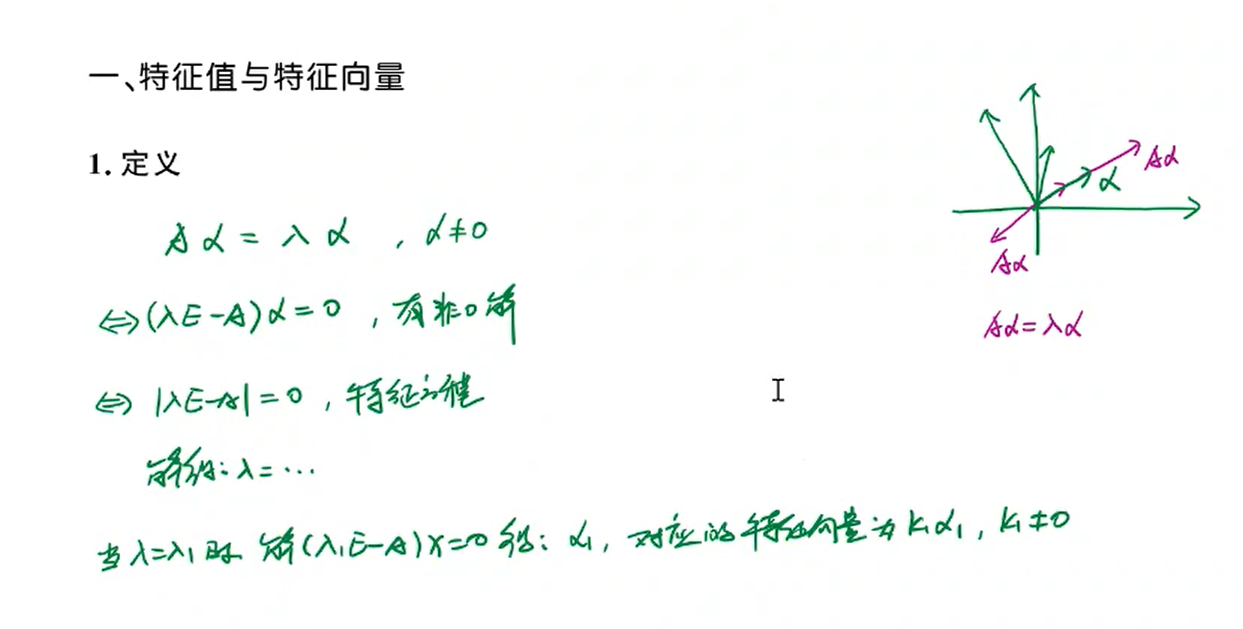 一、特征值与特征向量
1. 定义
Aα = λα , α≠0
⇔(λE-A)α=0 , 有非0解
⇔ |λE-A|=0 , 特征方程
解得: λ=…
当λ=λ₁时 解(λ₁E-A)x=0得: α₁, 对应的特征向量为k₁α₁, k₁≠0
Aα
α
Aα
Aα=λα